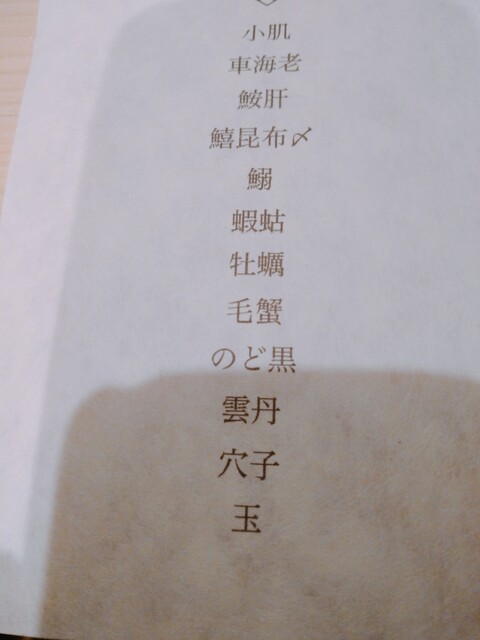 小肌
車海老
鮟肝
鱚昆布〆
鰯
蝦蛄
牡蠣
毛蟹
のど黒
雲丹
穴子
玉